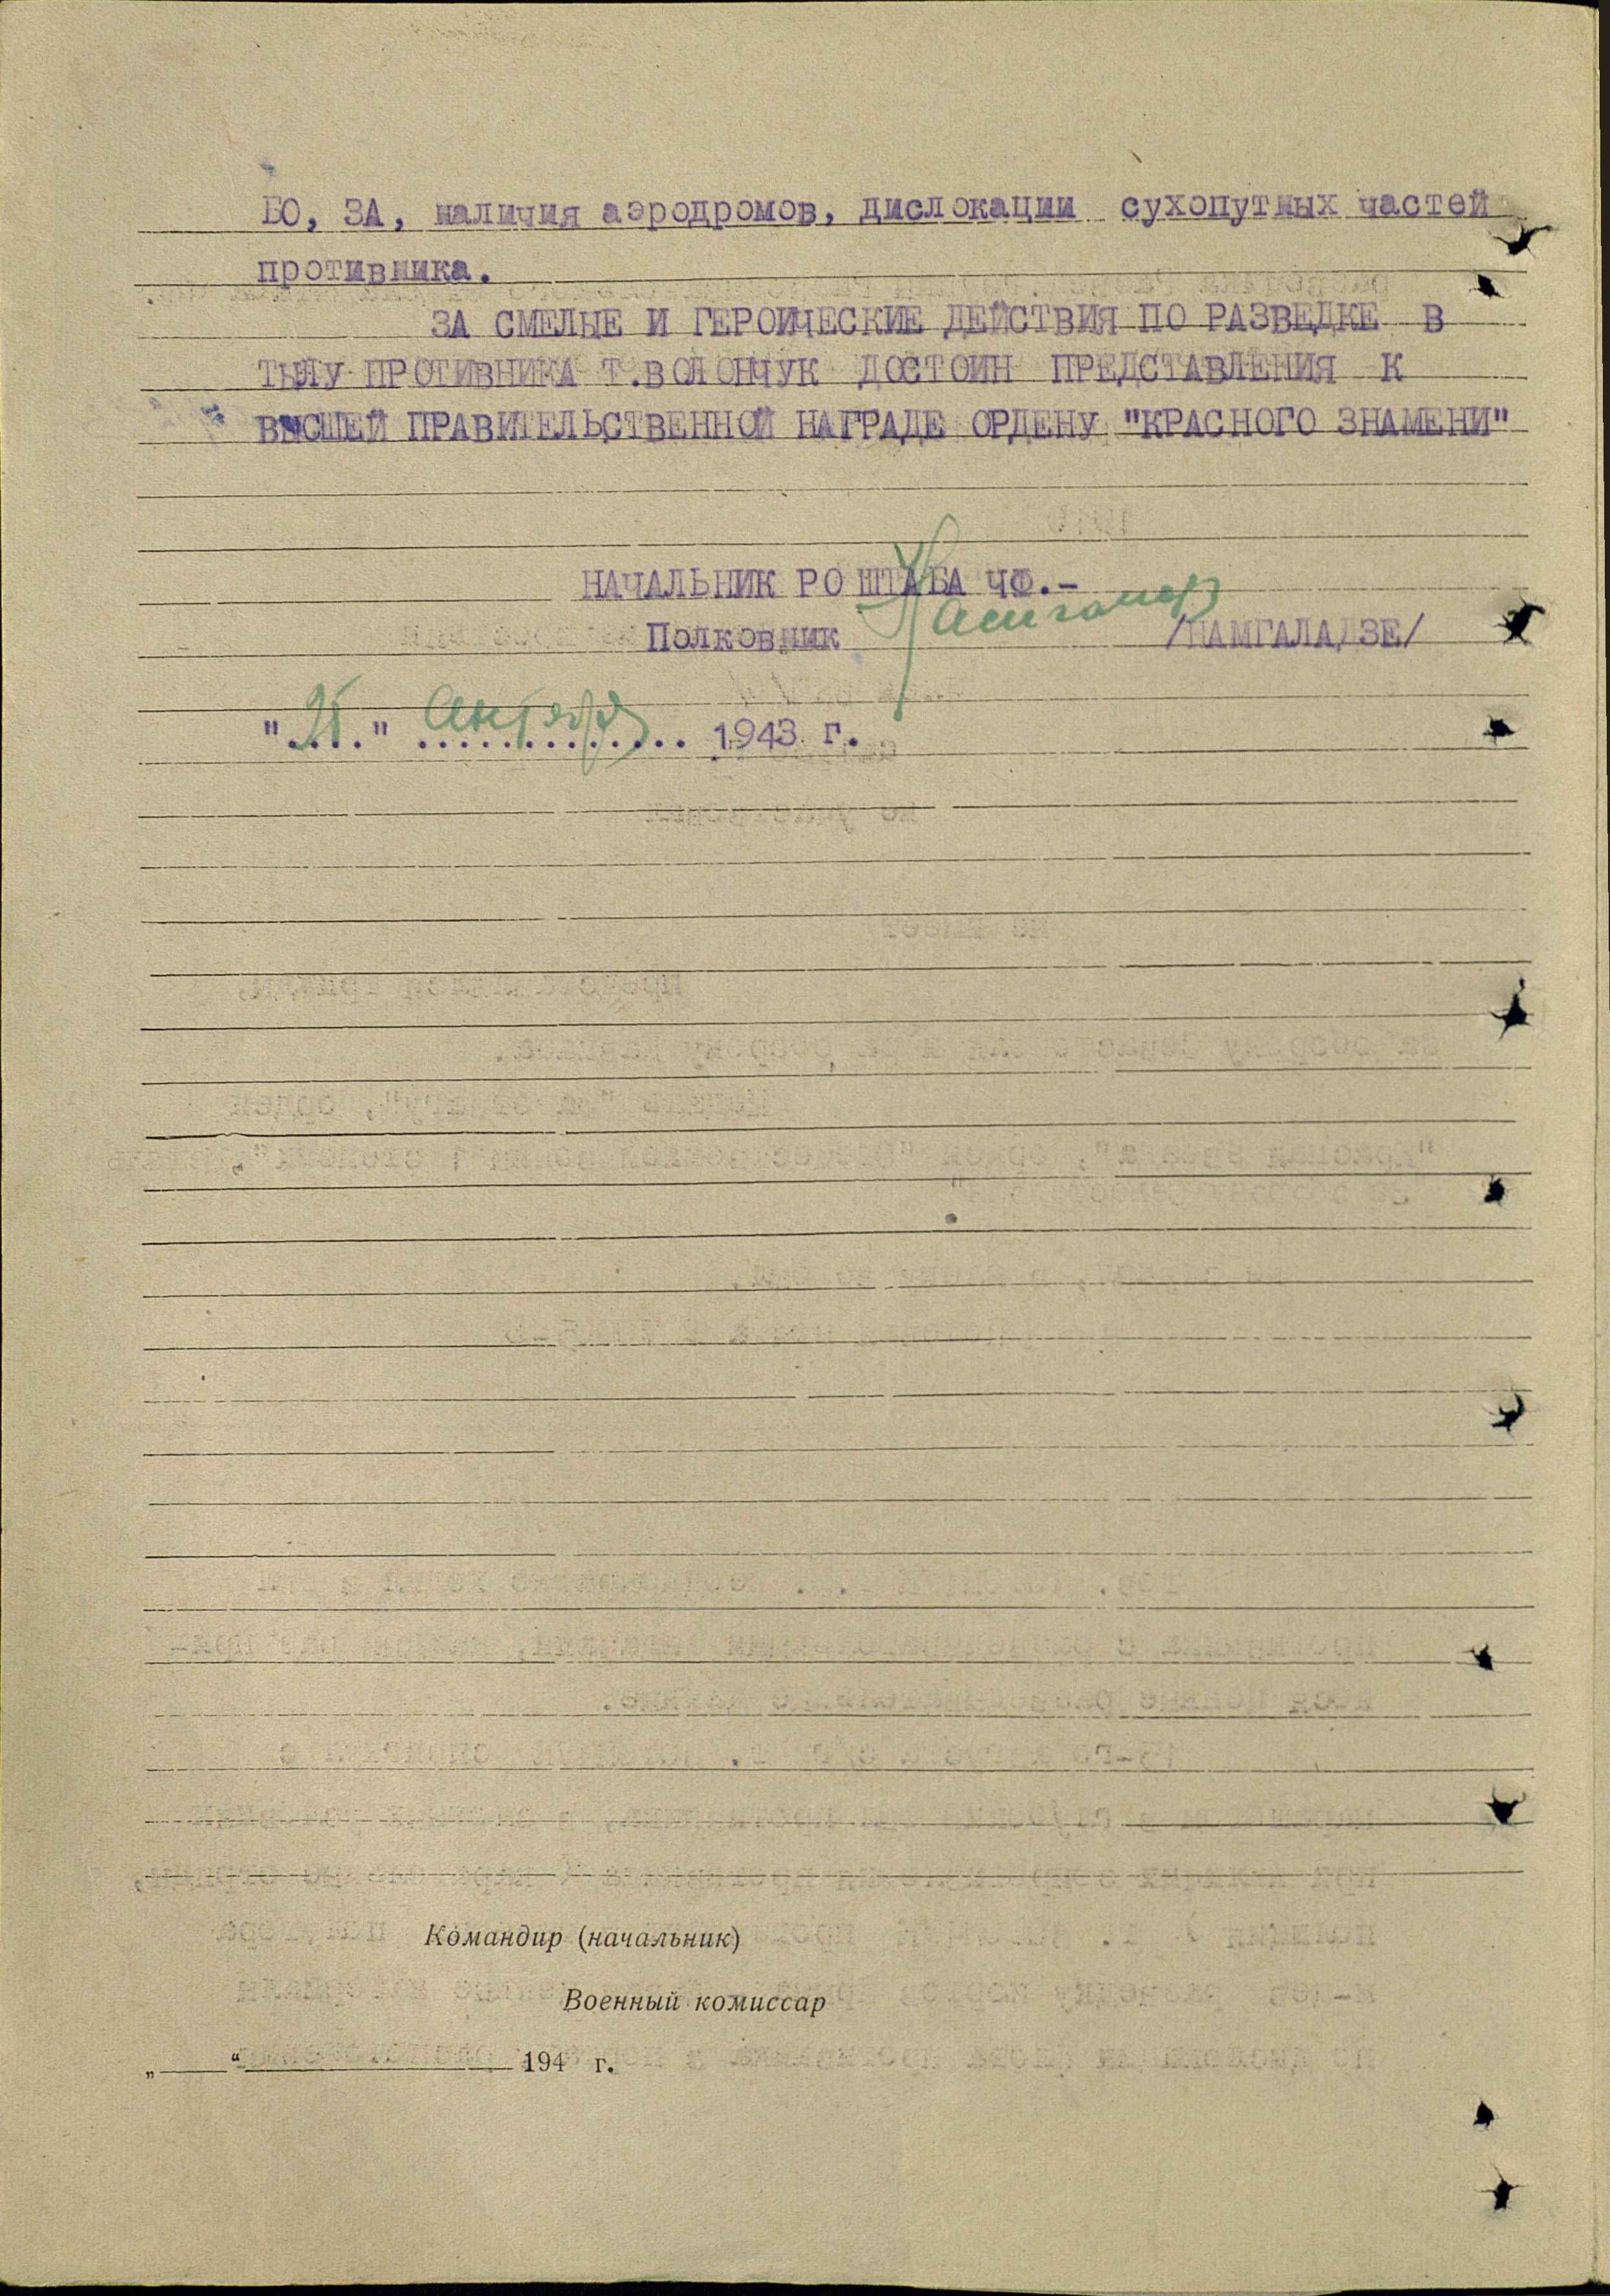 БО, ЗА, наличия аэродромов, дислокации сухопутных частей
противника.
ЗА СМЕЛЫЕ И ГЕРОИЧЕСКИЕ ДЕЙСТВИЯ ПО РАЗВЕДКЕ В
ТЫЛУ ПРОТИВНИКА Т.ВОЛОНЧУК ДОСТОИН ПРЕДСТАВЛЕНИЯ К
ВЫСШЕЙ ПРАВИТЕЛЬСТВЕННОЙ НАГРАДЕ ОРДЕНУ "КРАСНОГО ЗНАМЕНИ"
НАЧАЛЬНИК РО ШТАБА ЧФ.-
Полковник /НАМГАЛАДЗЕ/
"...." ............. 1943 г.
Командир (начальник)
Военный комиссар
„ “ 194 г.